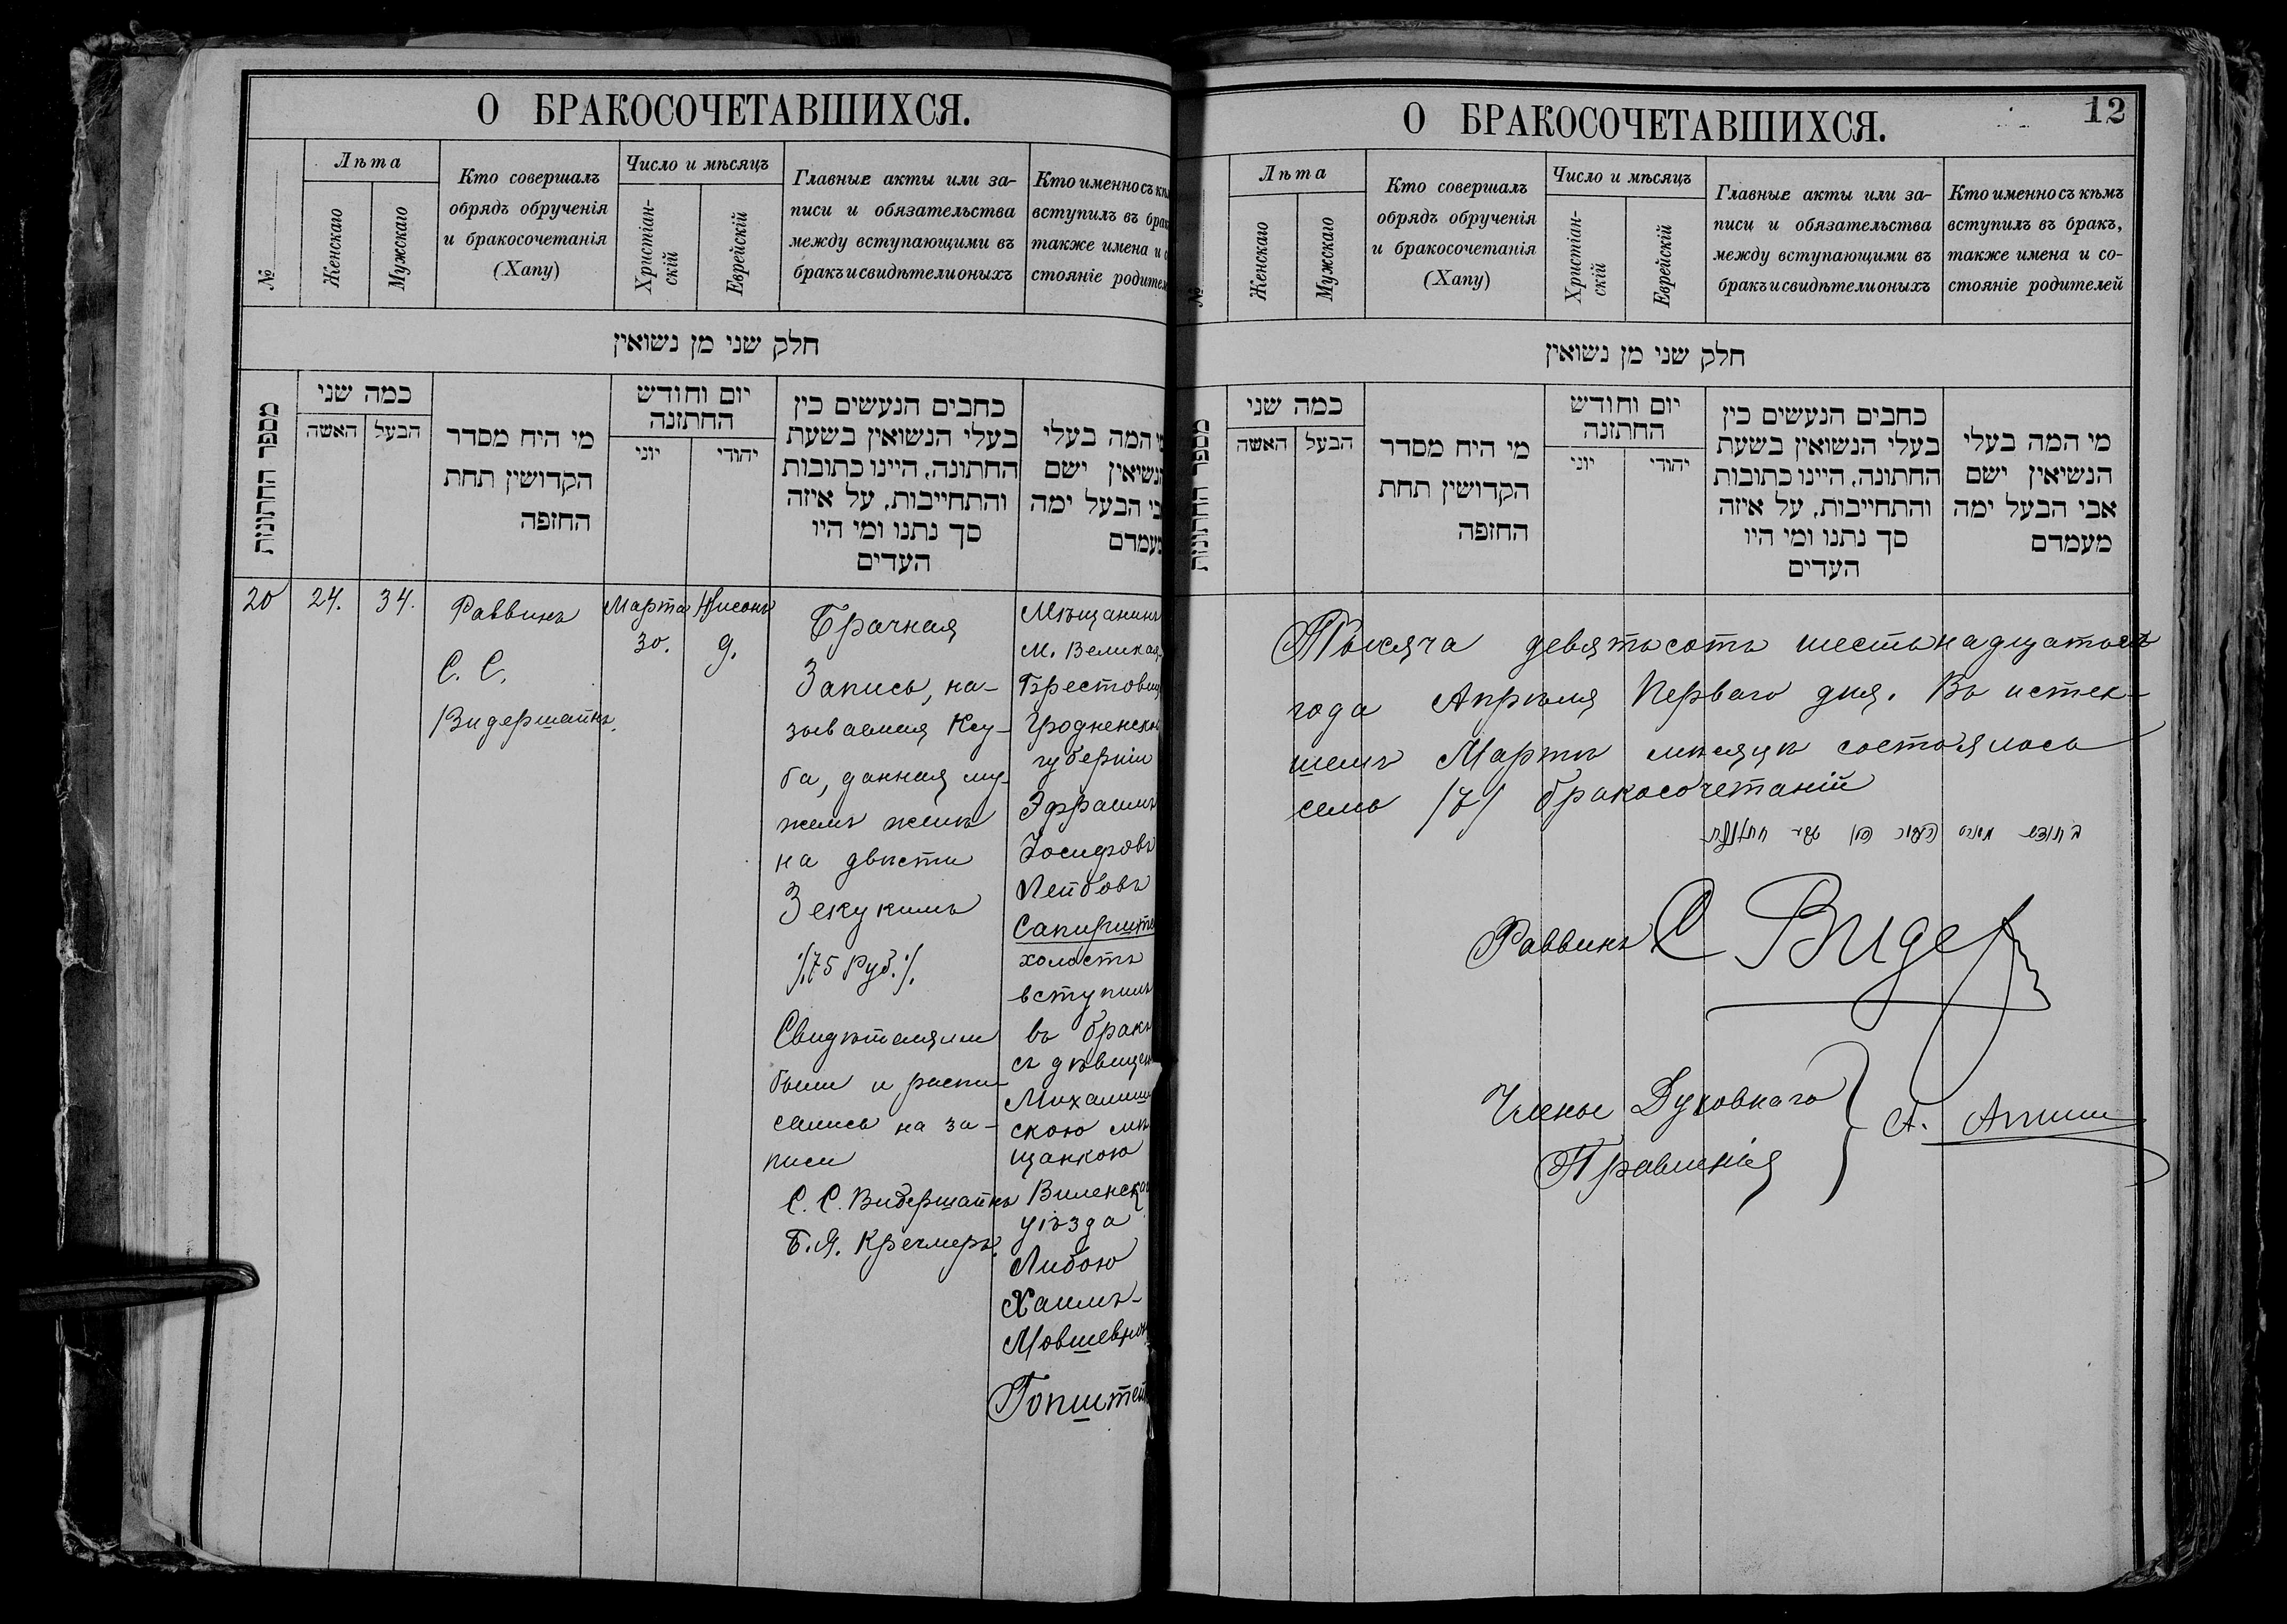 О БРАКОСОЧЕТАВШИХСЯ.
№
Лѣта
Женскаго
Мужскаго
Кто совершалъ
обрядъ обрученія
и бракосочетанія
(Хапу)
Число и мѣсяцъ
Христіан-
скій
Еврейскій
Главные акты или за-
писи и обязательства
между вступающими въ
бракъ и свидѣтели оныхъ
Кто именно съ
вступилъ въ брак
также имена и
стояніе родител
חלק שני מן נשואין
מספר החתונות
כמה שני
האשה
הבעל
מי היח מסדר
הקדושין תחת
החופה
יום וחודש
החתונה
יוני
יהודי
כחבים הנעשים כין
בעלי הנשואין בשעת
החתונה, היינו כתובות
והתחייבות, על איזה
סך נתנו ומי היו
העדים
המה בעלי
הנשואין ישם
הבעל ימה
מעמדם
20
24.
34.
Раввинъ
С. С.
Видершайнъ.
Марта
30.
Нисонъ
9.
Брачная
Запись, на-
зываемая Ксу-
ба, данная му-
жемъ женѣ
на двѣсти
Зекукимъ
/75 Руб./.
Свидѣтелями
были и распи-
сались на за-
писи
С. С. Видершайнъ
Б. Я. Кречмеръ.
Мѣщанинъ
м. Великая
Брестовиц
Гродненской
губерніи
Эфраимъ
Іосифовъ
Лейбовъ
Сапирште
холостъ
вступилъ
въ бракъ
съ дѣвицею
Михалиш
скою мѣ
щанкою
Виленска
уѣзда
Либою
Хаимъ-
Мовшевною
Гопштей
О БРАКОСОЧЕТАВШИХСЯ.
12
№
Лѣта
Женскаго
Мужскаго
Кто совершалъ
обрядъ обрученія
и бракосочетанія
(Хапу)
Число и мѣсяцъ
Христіан-
скій
Еврейскій
Главные акты или за-
писи и обязательства
между вступающими въ
бракъ и свидѣтели оныхъ
Кто именно съ кѣмъ
вступилъ въ бракъ,
также имена и со-
стояніе родителей
חלק שני מן נשואין
מספר החתונות
כמה שני
האשה
הבעל
מי היח מסדר
הקדושין תחת
החופה
יום וחודש
החתונה
יוני
יהודי
כחבים הנעשים כין
בעלי הנשואין בשעת
החתונה, היינו כתובות
והתחייבות, על איזה
סך נתנו ומי היו
העדים
מי המה בעלי
הנשואין ישם
אבי הבעל ימה
מעמדם
Тысяча девятьсотъ шестьнадцатаго
года Апрѣля Перваго дня. Въ истек-
шемъ Мартѣ мѣсяцѣ состоялось
семь /7/ бракосочетаній
Раввинъ С Видер
Члены Духовнаго
Правленія